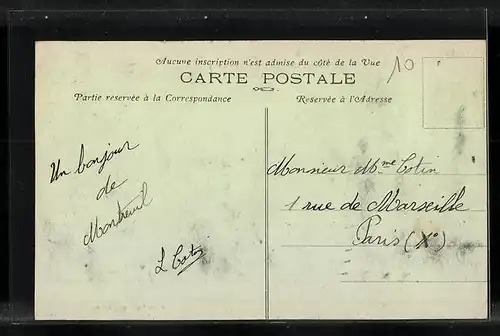 Aucune inscription n'est admise du côté de la Vue
CARTE POSTALE
Partie reservée à la Correspondance
Reservée à l'Adresse
10
Un bonjour
de
Montreuil
L Cotin
Monsieur Mme Cotin
1 rue de Marseille
Paris (Xe)